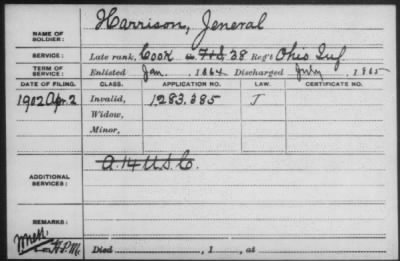 NAME OF SOLDIER: Harrison, Jeneral
SERVICE: Late rank, Cook F&S, 38 Reg't Ohio Inf.
TERM OF SERVICE: Enlisted Jan. 1864 Discharged July, 1865
DATE OF FILING. CLASS. APPLICATION NO. LAW. CERTIFICATE NO.
1902 Apr. 2 Invalid, 1.283.385 J
Widow,
Minor,
ADDITIONAL SERVICES: A. 14 U.S.C.
REMARKS:
Died , 1 , at